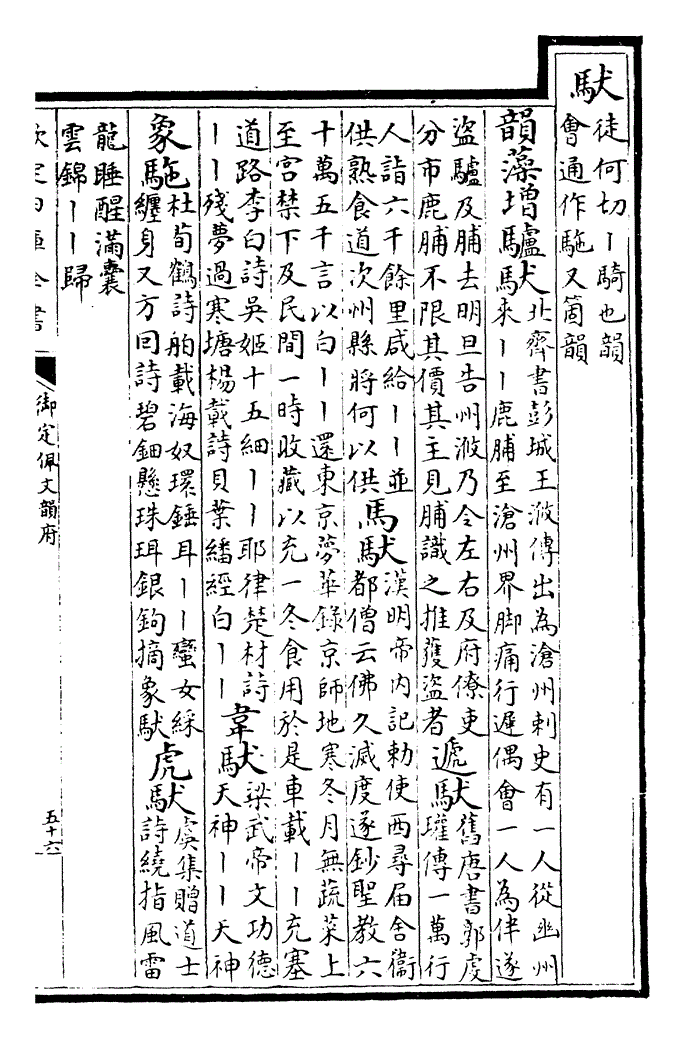 馱徒何切丨騎也韻
會通作駞又箇韻
韻藻增驢馱北齊書彭城王浟傳出為滄州刺史有一人從幽州
來丨丨鹿脯至滄州界脚痛行遲偶會一人為伴遂
盜驢及脯去明旦告州浟乃令左右及府僚吏
分市鹿脯不限其價其主見脯識之推獲盜者
遞馱舊唐書郭虔
瓘傳一萬行
人詣六千餘里咸給丨丨並
供熟食道次州縣將何以供
馬馱漢明帝内記勅使西尋届舍衛
都僧云佛久滅度遂鈔聖教六
十萬五千言以白丨丨還東京夢華錄京師地寒冬月無蔬菜上
至宮禁下及民間一時收藏以充一冬食用於是車載丨丨充塞
道路李白詩吳姬十五細丨丨耶律楚材詩
丨丨殘夢過寒塘楊載詩貝葉繙經白丨丨
韋馱梁武帝文功德
天神丨丨天神
象駞杜荀鶴詩舶載海奴環錘耳丨丨蠻女綵
纏身又方回詩碧鈿懸珠珥銀鉤摘象馱
虎馱虞集贈道士
詩繞指風雷
龍睡醒滿囊
雲錦丨丨歸
欽定四庫全書
御定佩文韻府
五十六